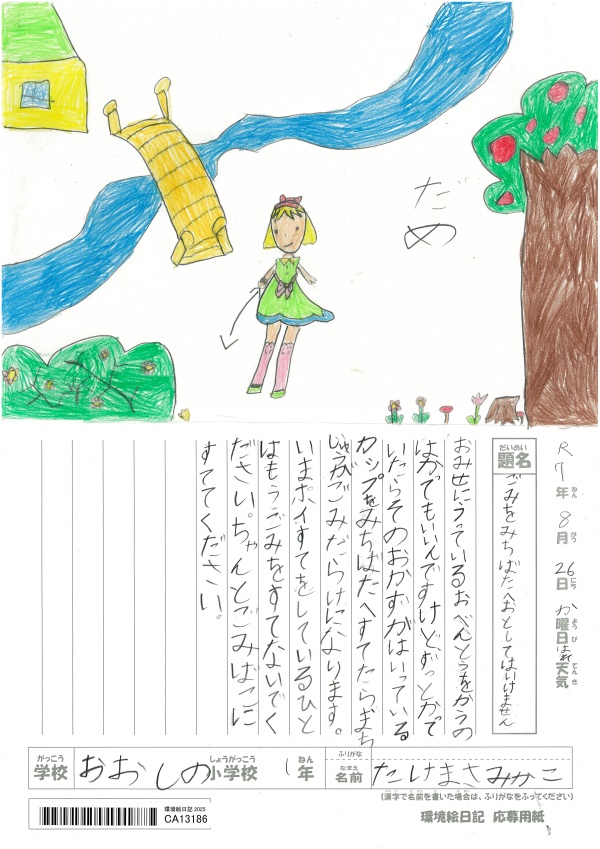 だめ
R7年8月26日か曜日はれ天気
ねん がつ にち ようび てんき
だいめい
題名
ごみをみちばたへおとしてはいけません
おみせにうっているおべんとうをかうの
はかってもいいんですけど、ずっとかって
いたらそのおかずがはいっている
カップをみちばたへすてたらまち
じゅうがごみだらけになります。
いまポイすてをしているひと
はもうごみをすてないでく
ださい。ちゃんとごみばこに
すててください。
がっこう しょうがっこう ねん ふりがな なまえ
学校 おおしの小学校 1年 名前 たけまさみかこ
(漢字で名前を書いた場合は、ふりがなをふってください)
環境絵日記 2025
CA13186
環境絵日記 応募用紙